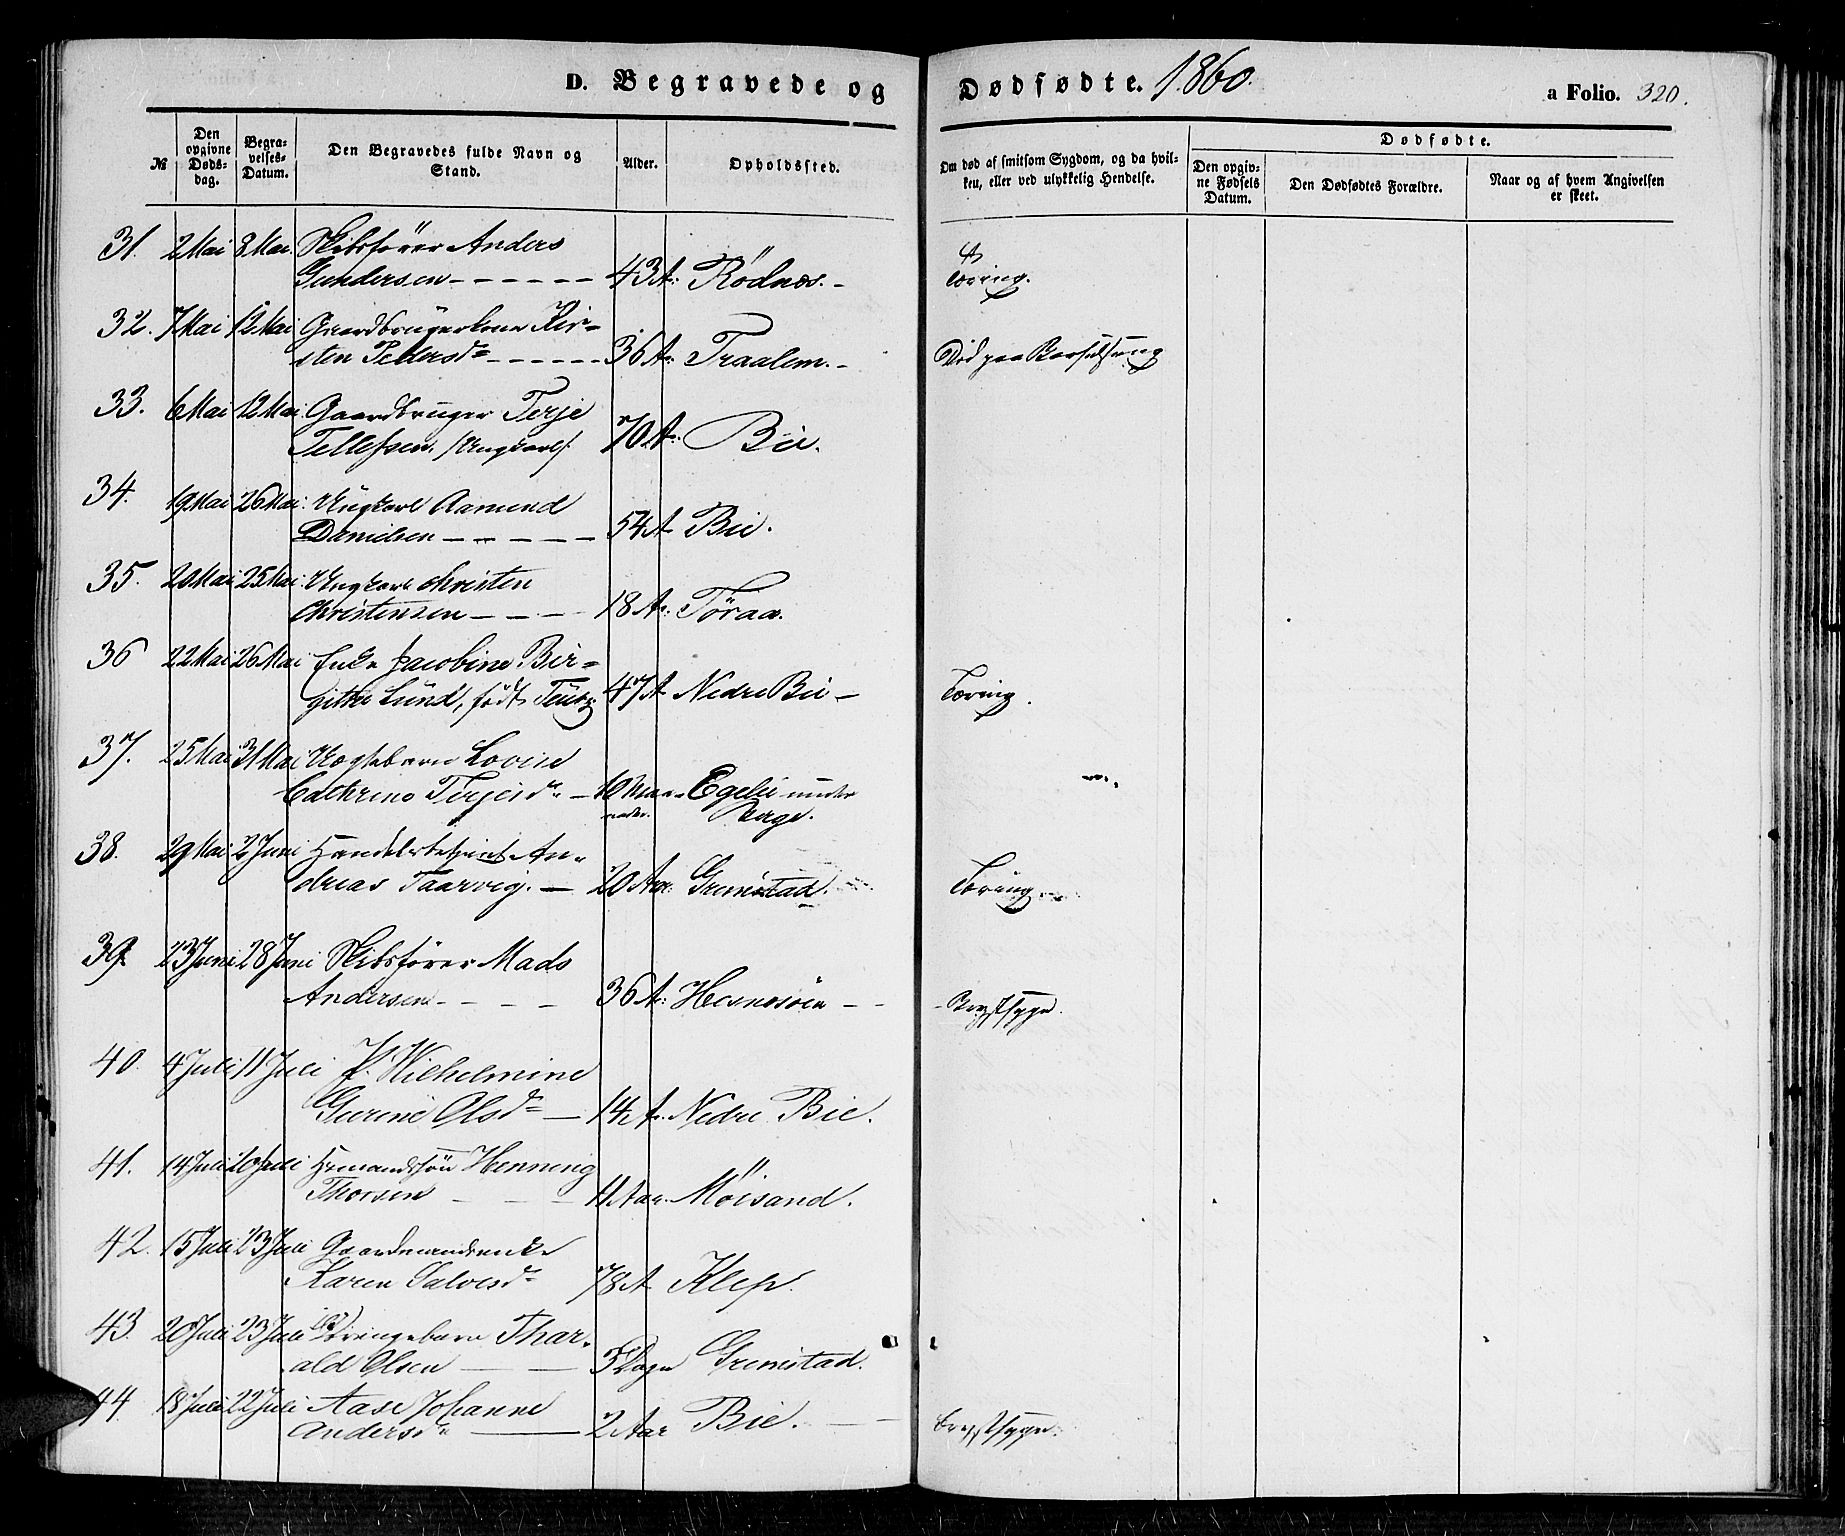 D. Begravede og Dødfødte. 1860. a Folio. 320.
№
Den opgivne Døds-dag.
Begra-velses-Datum.
Den Begravedes fulde Navn og Stand.
Alder.
Opholdssted.
Om død af smitsom Sygdom, og da hvil-ken, eller ved ulykkelig Hendelse.
Dødfødte.
Den opgiv-ne Fødsels Datum.
Den Dødfødtes Forældre.
Naar og af hvem Angivelsen er skeet.
31. 2 Mai 8 Mai. Skibsfører Anders
Gundersen - - - - - - 43 A: Rödnes. - Tæring.
32. 7 Mai 12 Mai Gaardbrugerkone Kir=
sten Pedersd - - - - - 36 A: Traalem. - Död paa Barselseng
33. 6 Mai 12 Mai Gaardbruger Terje
Tellefsen. /Ungkarl/. 70 A: Bie.
34. 19 Mai 26 Mai: Ungkarl Aamund
Danielsen - - - - - 54 A Bie.
35. 20 Mai 25 Mai: Ungkarl Christen
Christensen - - - - 18 A: Töraa.
36 22 Mai 26 Mai Enke Jacobine Bir=
githe Lund, födt 47 A Nedre Bie - Tæring.
37. 25 Mai 31 Mai Ægtebarn Lovise
Cathrine Terjesd - 10 Maa- Egelie under
neder. Berge.
38. 29 Mai 2 Juni Handelsbetjent An-
dreas Taarvig. - 20 Aar. Grimstad. Tæring
39. 23 Juni 28 Juni Skibsförer Mads
Andersen - - - - 36 A: Hesnesöen - - Brystsyge.
40. 4 Juli 11 Juli P. Wilhelmine
Gurine Olsd - 14 A. Nedre Bie.
41. 14 Juli 20 Juli Henning
Thorsen - - - 11 Aar. Möisand.
42. 15 Juli 23 Juli Gaardmandsenke
Karen Salvesd 78 A Klep.
43. 20 Juli 23 Juli Drengebarn Thar-
ald Olsen - - 5 Dage Grimstad.
44. 18 Juli 22 Juli Aase Johanne
Andersd - 2 Aar Bie. - - Brystsyge.